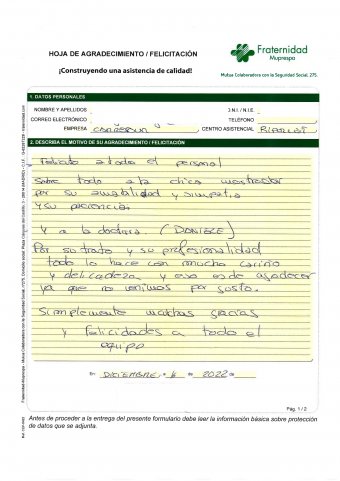 HOJA DE AGRADECIMIENTO / FELICITACIÓN
¡Construyendo una asistencia de calidad!
Fraternidad
Muprespa
Mutua Colaboradora con la Seguridad Social, 275
1. DATOS PERSONALES
NOMBRE Y APELLIDOS
D.N.I. / N.I.E.
CORREO ELECTRÓNICO
TELÉFONO
EMPRESA
CENTRO ASISTENCIAL
2. DESCRIBA EL MOTIVO DE SU AGRADECIMIENTO / FELICITACIÓN
Felicito a todo el personal
Sobre todo a la chica mostrador
por su amabilidad y simpatia
y su paciencia.
Y a la doctora. (DONIELE)
Por su trato y su profesionalidad
todo lo hace con mucho cariño
y delicadeza y eso es de agradecer
ya que no venimos por gusto.
Simplemente muchas gracias
y felicidades a todo el
equipo
En DICIEMBRE, 6 de 2022 de
Pág. 1 / 2
Antes de proceder a la entrega del presente formulario debe leer la información básica sobre protección
de datos que se adjunta.